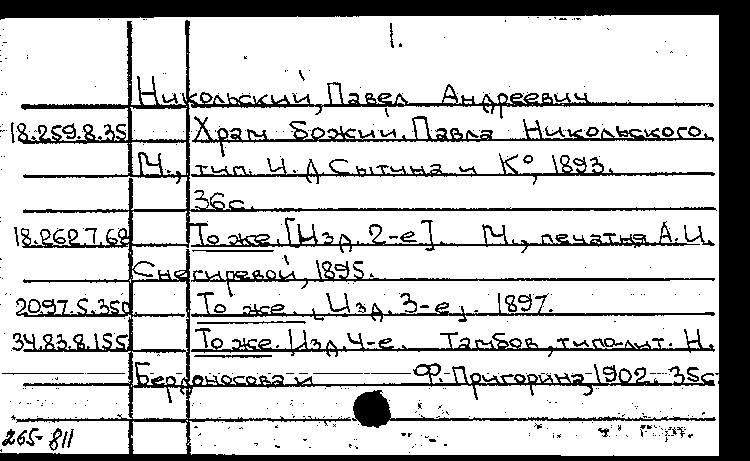 1.
Никольский, Павел Андреевич
18.259.8.35 Храм Божий. Павла Никольского.
М., тип. И.Д. Сытина и К°, 1893.
36с.
18.262.7.62 То же. [Изд. 2-е]. М., печатня А.И.
Снегиревой, 1895.
20.97.5.350 То же. [Изд. 3-е]. 1897.
34.83.8.155 То же. Изд. 4-е. Тамбов, типо-лит. Н.
Бердоносова и Ф. Пригорина, 1902. 35с
265-811